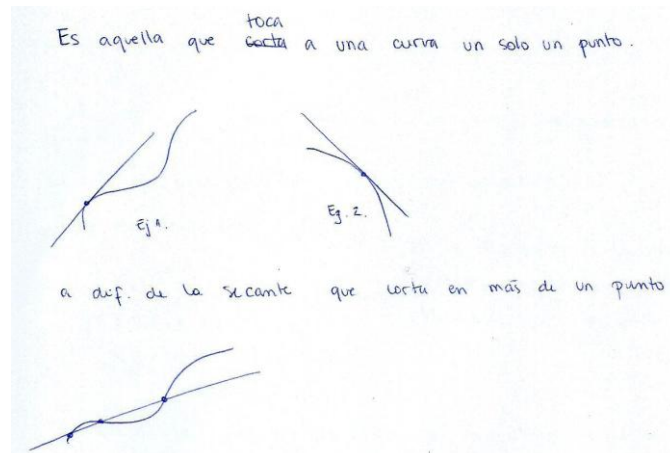 toca
Es aquella que corta a una curva un solo un punto.
Ej 1.
Ej. 2.
a dif. de la secante que corta en más de un punto